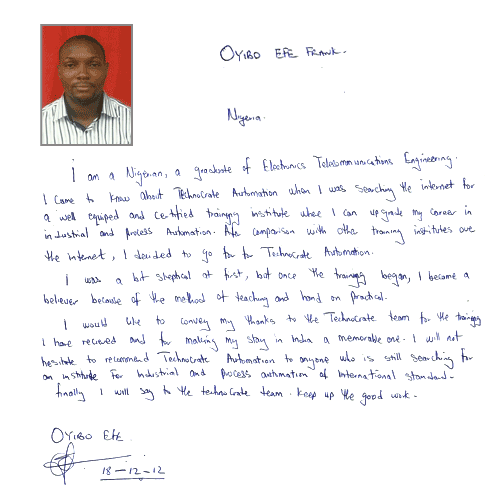 OYIBO EFE FRANK.
Nigeria.
I am a Nigerian, a graduate of Electronics Telecommunications Engineering.
I came to know about Technocrate Automation when I was searching the internet for
a well equiped and certified training institute where I can upgrade my career in
industrial and process Automation. After comparison with other training institutes over
the internet, I decided to go for for Technocrate Automation.
I was a bit skeptical at first, but once the training began, I became a
believer because of the method of teaching and hand on practical.
I would like to convey my thanks to the Technocrate team for the training
I have received and for making my stay in India a memorable one. I will not
hesitate to recommend Technocrate Automation to anyone who is still searching for
an institute for Industrial and process automation of International standard.
finally I will say to the technocrate team. Keep up the good work.
OYIBO EFE
18-12-12